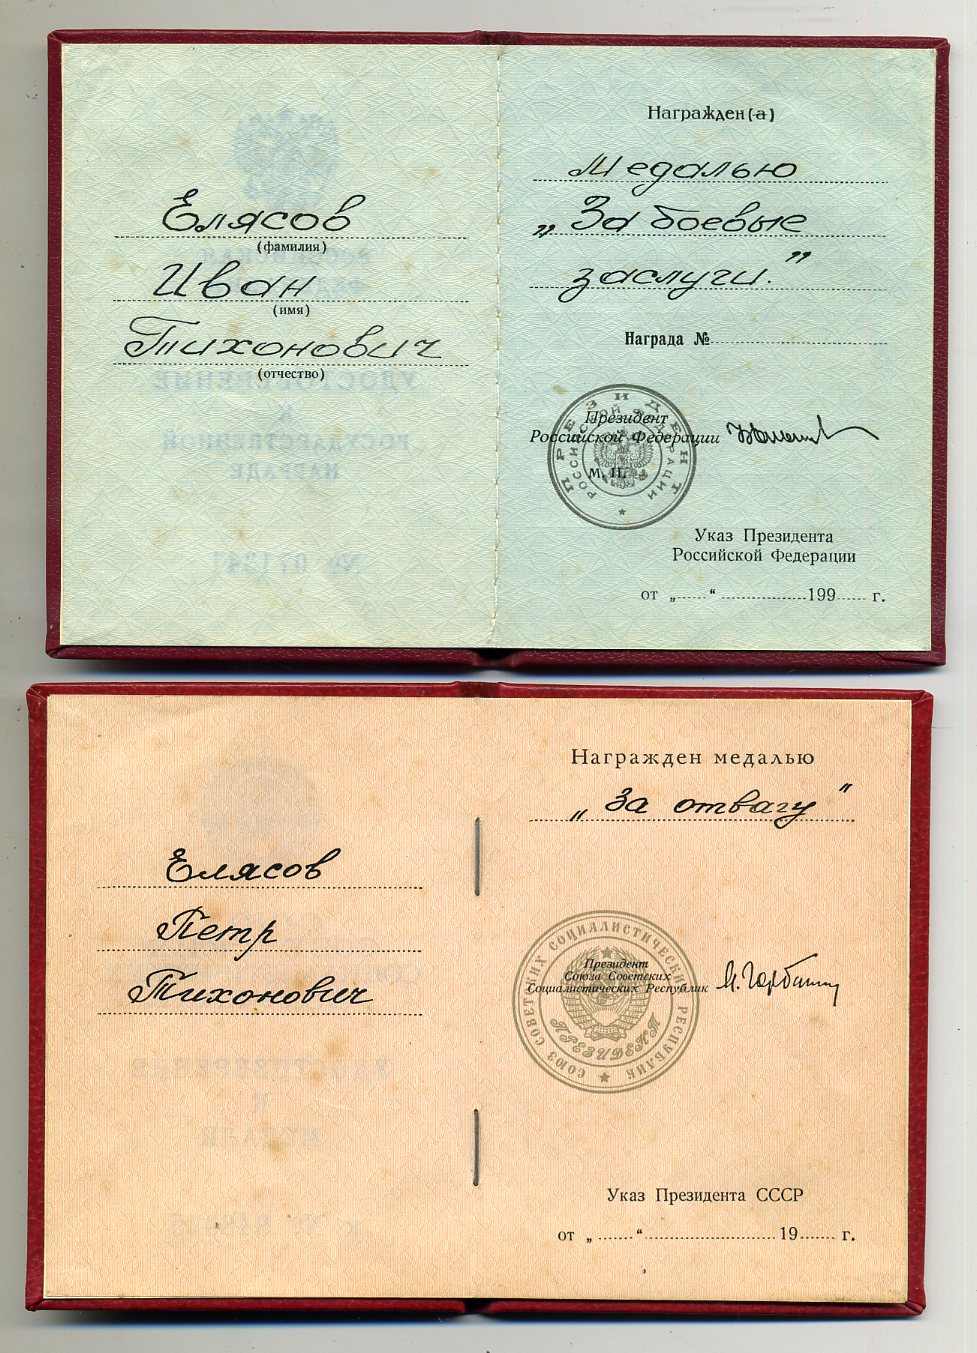 Елясов
(фамилия)
Иван
(имя)
Тихонович
(отчество)
УДОСТОВЕРЕНИЕ
К
ГОСУДАРСТВЕННОЙ
НАГРАДЕ
№ 071341
Награжден (а)
Медалью
„За боевые
заслуги."
Награда №
ПРЕЗИДЕНТ
РОССИЙСКОЙ ФЕДЕРАЦИИ
Президент
Российской Федерации
М. П.
Указ Президента
Российской Федерации
от „ “ 199 г.
Елясов
Петр
Тихонович
К
МЕДАЛИ
Награжден медалью
„За отвагу"
СОЮЗ СОВЕТСКИХ СОЦИАЛИСТИЧЕСКИХ РЕСПУБЛИК
ПРЕЗИДЕНТ
Президент
Союза Советских
Социалистических Республик
М. Горбачев
Указ Президента СССР
от „ “ 19 г.